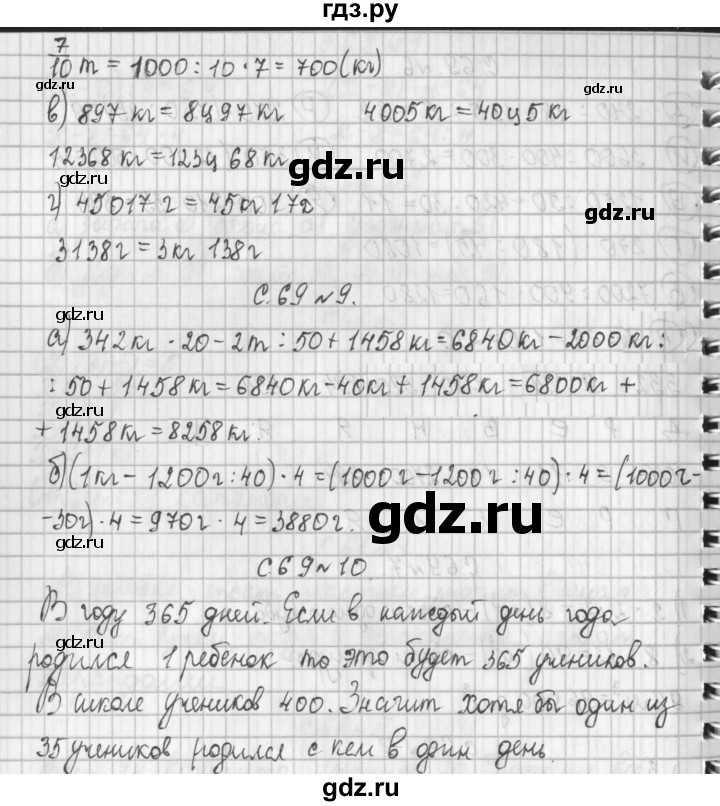 гдз.ру
7/10 т = 1000 : 10 · 7 = 700 (кг)
в) 897 кг = 8ц 97 кг 4005 кг = 40ц 5 кг
12368 кг = 123ц 68 кг
gdz.ru
gdz.ru
г) 45017 г = 45кг 17г
3138 г = 3кг 138г
gdz.ru
С. 69 №9.
gdz.ru
а) 342 кг · 20 - 2т : 50 + 1458 кг = 6840 кг - 2000 кг :
: 50 + 1458 кг = 6840 кг - 40кг + 1458 кг = 6800 кг +
gdz.ru
+ 1458 кг = 8258 кг.
б) (1кг - 1200г : 40) · 4 = (1000г - 1200г : 40) · 4 = (1000г -
gdz.ru
- 30г) · 4 = 970г · 4 = 3880г.
gdz.ru
С. 69 №10
В году 365 дней. Если в каждый день года
gdz.ru
родился 1 ребенок то это будет 365 учеников.
В школе учеников 400. Значит хотя бы один из
35 учеников родился с кем в один день.
gdz.ru
gdz.ru